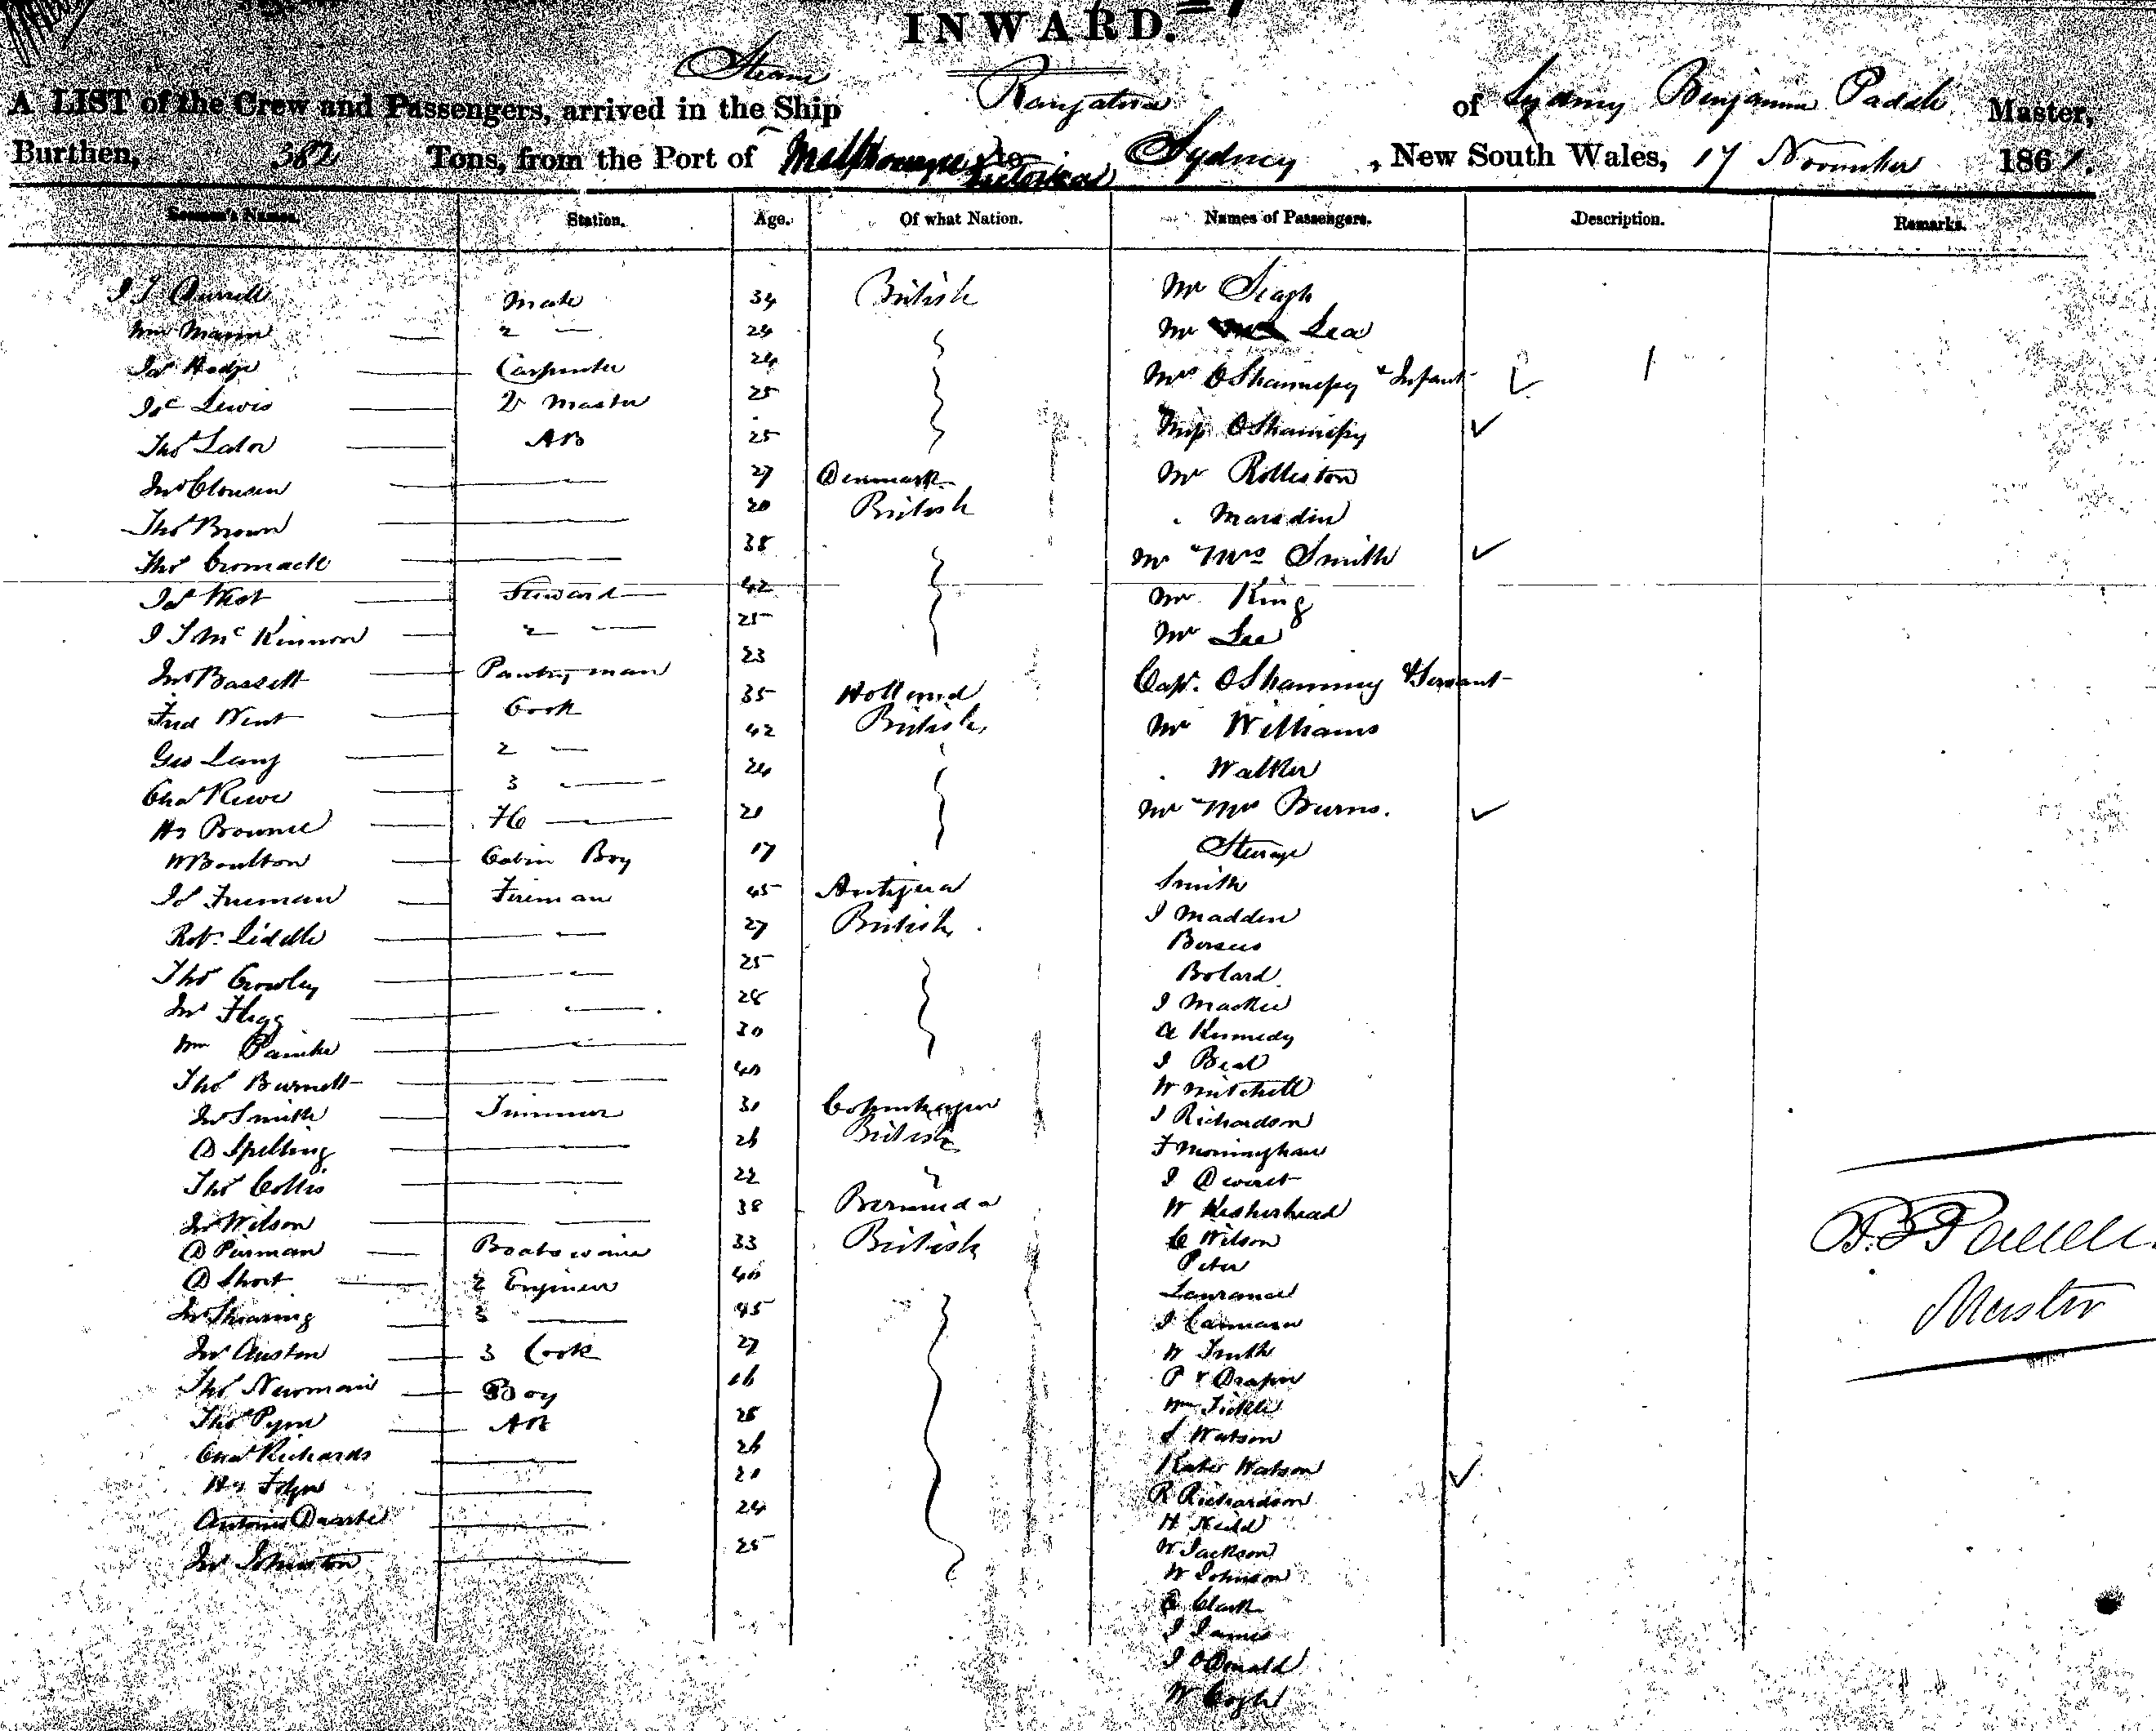 INWARD.
A LIST of the Crew and Passengers, arrived in the Steam Ship Rangatira of Sydney Benjamin Master,
Burthen, 382 Tons, from the Port of Melbourne Victoria to Sydney, New South Wales, 17 November 1867.
Seamen's Names. Station. Age. Of what Nation. Names of Passengers. Description. Remarks.
Mate 34 British Mr
Wm Mann 2 — 24 Mr Lea
Jas Hodge Carpenter 24 Mrs OShannessy & Infant
Jas Lewis Master 25 Miss OShannessy
Thos Lalor AB 25
Jno Clousen — 27 Denmark Mr Rolleston
Thos Brown — 20 British Marsden
Thos Cromack — 38 Mr & Mrs Smith
Jas West Steward 42 Mr King
J T McKinnon 2 — 25 Mr Lee
Jno Bassett Pantryman 23 Capt. OShannessy & Servant
Fred Went Cook 35 Holland Mr Williams
Geo Lang 2 — 42 British Walker
Chas 3 — 24 Mr & Mrs Burns.
Hy 20 Steerage
W Boulton Cabin Boy 17 Smith
Jas Freeman Fireman 45 Antigua J Madden
Robt Liddle — 27 British
Thos Crowley — 25 Bolard
Jno Flegg — 28 J Mackie
Wm — 30 A Kennedy
Thos Burnett — 40 J Beal
Jno Smith Trimmer 30 Copenhagen W Mitchell
D Spelling — 26 British J Richardson
Thos Collis — 22 F
Jno Wilson — 38 Bermuda W
D Boatswain 33 British C Wilson
D Short 2 Engineer 40 Peter
Jno Shearing 3 — 45 Laurance
Jno Auston 3 Cook 27 W Smith
Thos Newman Boy 16 P & Draper
Thos Pyne AB 28 Wm Tickle
Chas Richards — 26 S Watson
Hy — 20 Kate Watson
Antonio Duarte — 24 R Richardson
Jno Johnston — 25 H
W Jackson
W Johnson
C Clark
J James
J ODonald
W
B.
Master